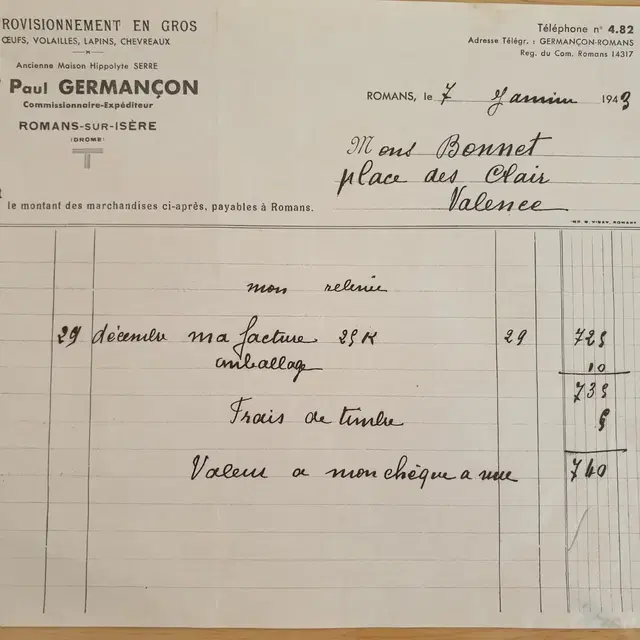 ROVISIONNEMENT EN GROS
ŒUFS, VOLAILLES, LAPINS, CHEVREAUX
Ancienne Maison Hippolyte SERRE
Paul GERMANÇON
Commissionnaire-Expéditeur
ROMANS-SUR-ISÈRE
(DROME)
Téléphone n° 4.82
Adresse Télégr. : GERMANÇON-ROMANS
Reg. du Com. Romans 14317
ROMANS, le 7 Janvier 1943
Mons Bonnet
place des Clair
Valence
le montant des marchandises ci-après, payables à Romans.
mon relevé
29 décembre ma facture 25 K 29 725
emballage 10
735
Frais de timbre 5
Valeur a mon chèque a vue 740